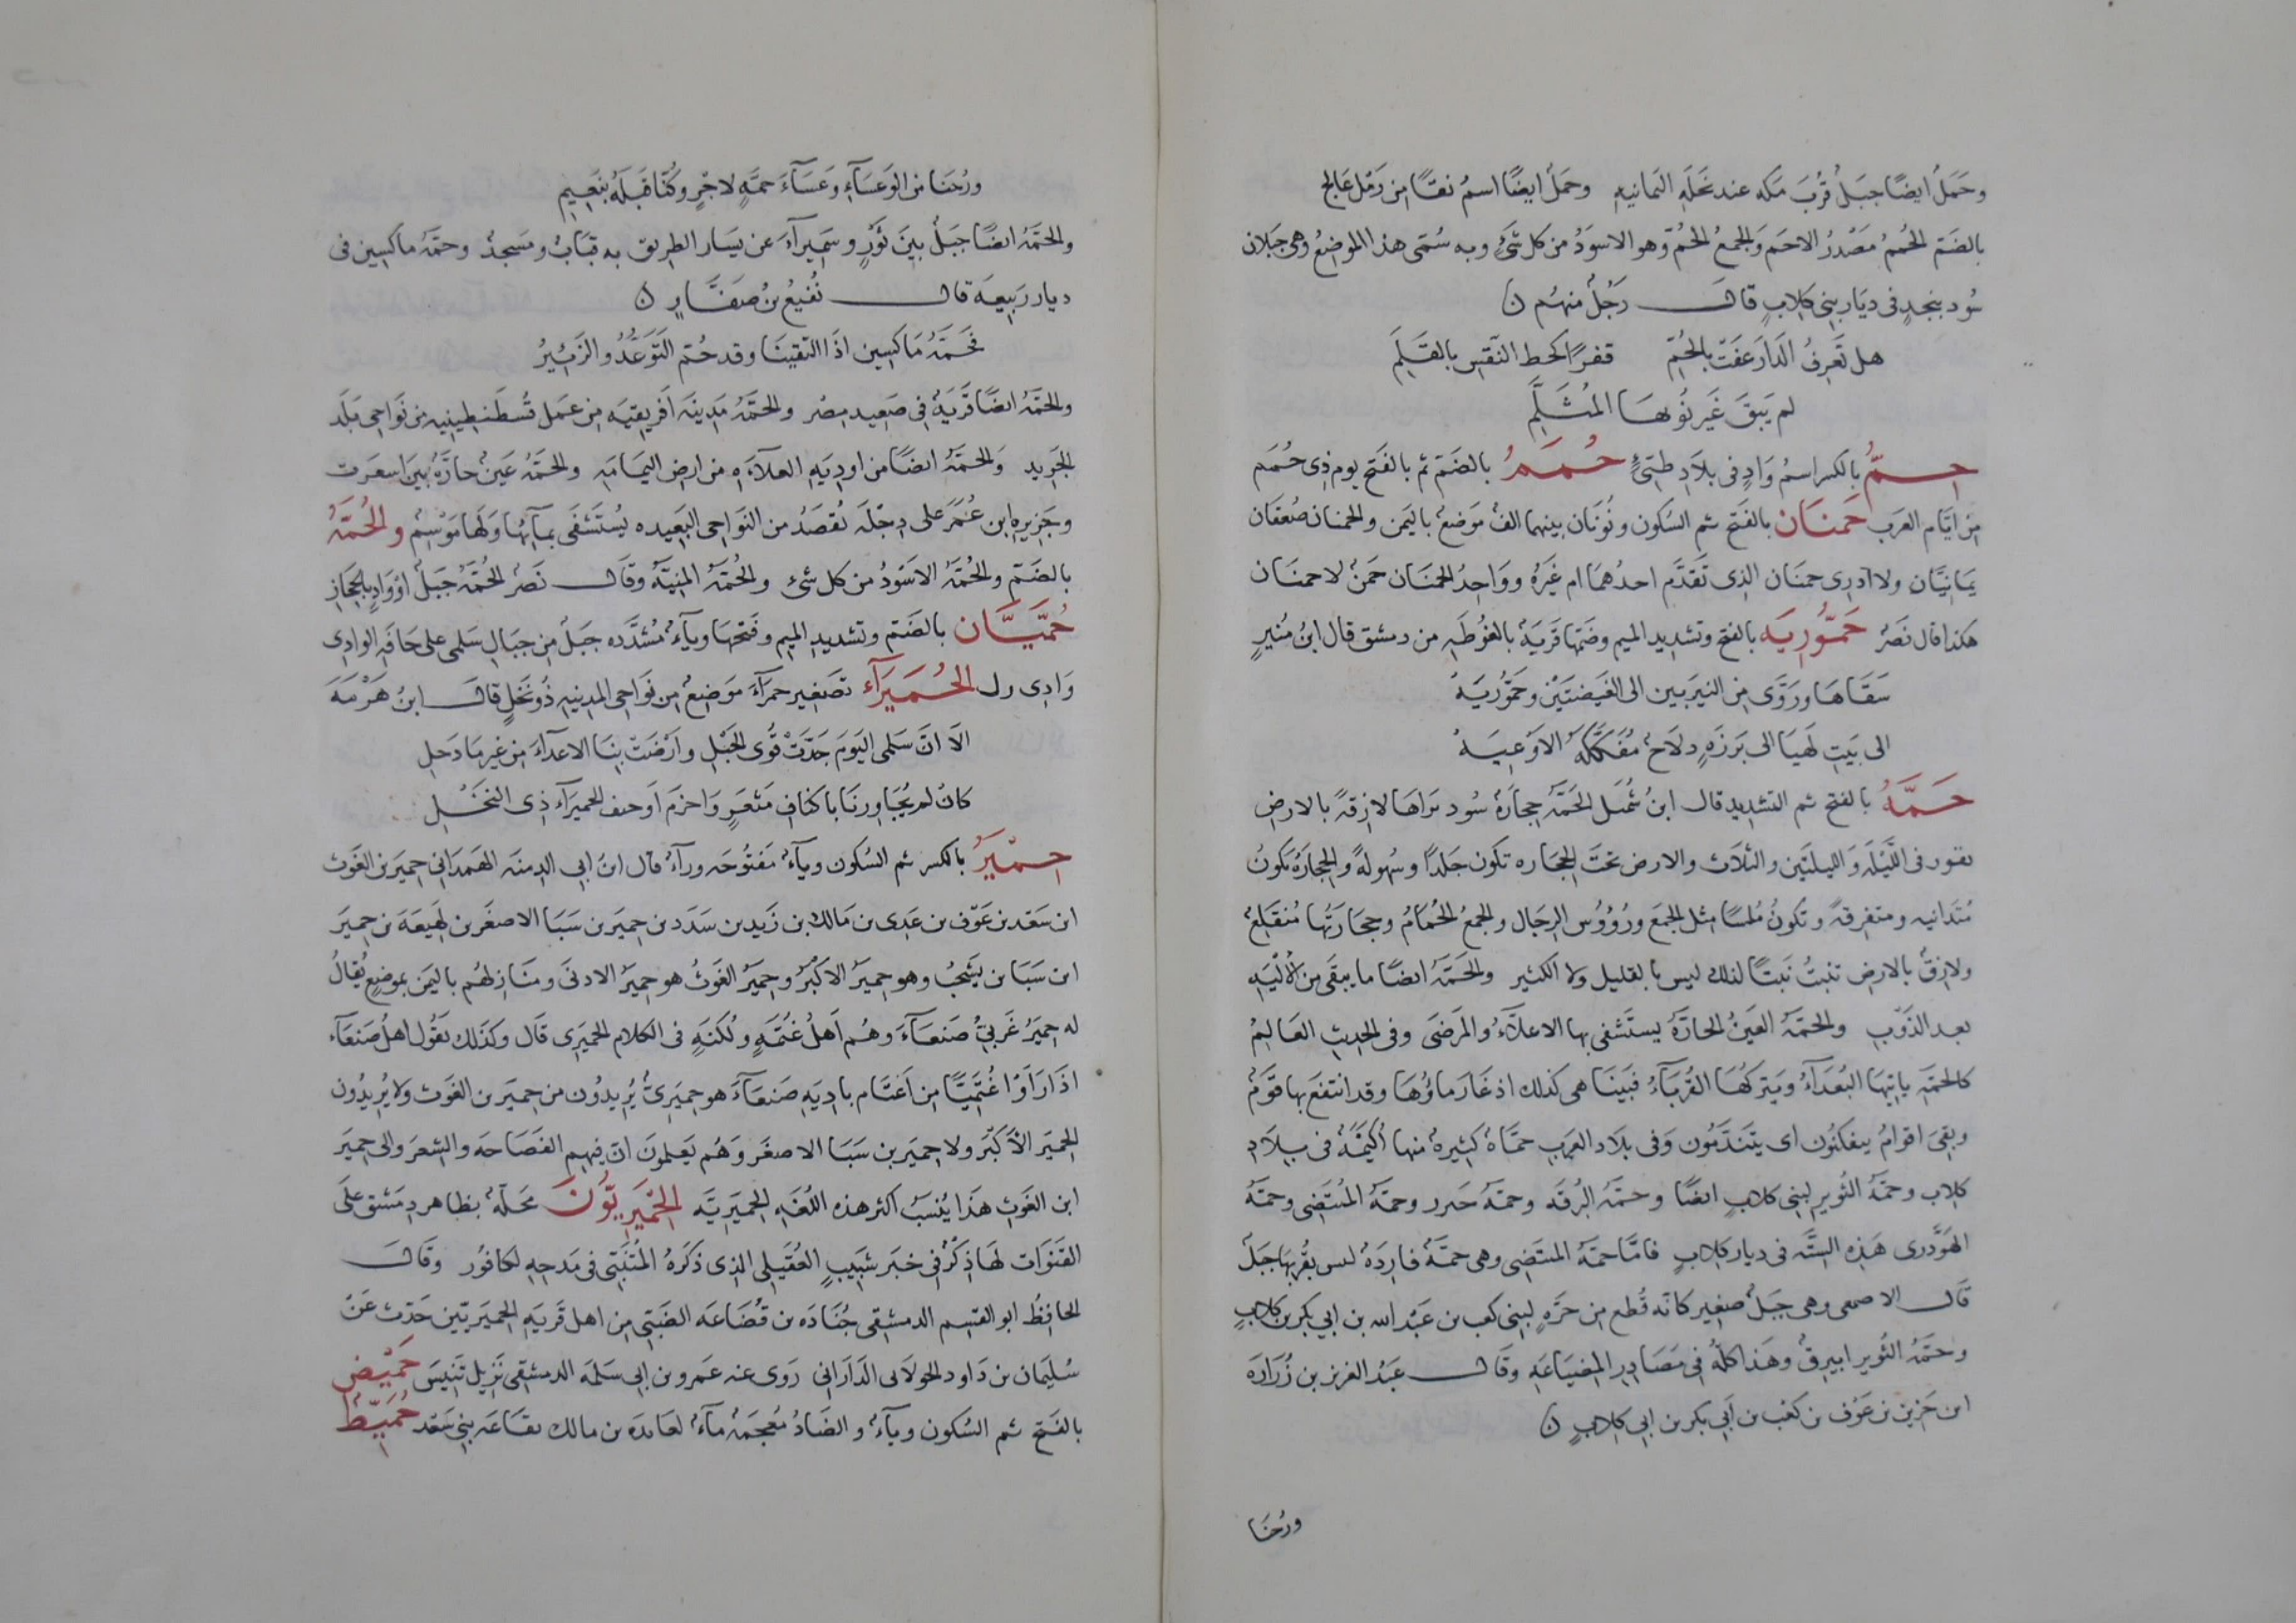 وحَمَلُ ايضًا جبَلُ قُربَ مَكه عند نَخلَهِ اليَمانيهِ وحَملُ ايضًا اسمُ نقًا مِن رَمل عَالِج
بالضَم الحُمُ مَصْدرُ الاحَم وَالجمعُ الحُمُ وَهو الاسوَدُ من كل شئٍ وبه سُمّى هذا الموضِعُ وهى جَبَلان
سُود بنجدٍ فى ديَار بنِى كلابٍ قال رَجُلٌ منهُم ن
هل تَعرِفُ الدَارَ عَفَت بالحُمِّ قفرًا كخط النَقسِ بالقَلَمِ
لم يَبقَ غَير نُوهَا المُثَلَّمِ
حِمُّ بالكسر اسمُ وَادٍ فى بلاَدِ طيّئٍ حُمَمُ بالضَم ثم بالفَتح يوم ذِى حُمَم
مِن ايَّام العَرب حَمنَان بالفَتح ثم السُكون ونُونَان بينهما الفُ مَوضعُ باليَمن والحمنان صُعقَان
يمَانيَّانِ ولا ادرِى حمنَان الذِى تَقدَّم احدُهمَا ام غَيَرهُ ووَاحِدُ الحمنَان حَمنُ لا حمنَان
هكذا قال نَصرُ حَمُّورِيَه بالفتح وتشديد الميم وضَمّها قَريَةُ بالغُوطَهِ من دمشق قال ابنُ مُنيرٍ
سَقَاهَا وروَّى مِن النيرَبين الى الغَيضتَيْن وحَمّوُريَهْ
الى بَيتِ لَهيَا الى بَرزَهٍ دلَاحُ مُفَكَّكَهُ الاَوْعِيَهْ
حَمَّهُ بالفتح ثم التشديد قال ابنُ شُمَيل الحَمَّهُ حِجاَرهُ سُود تراهَا لازِقهً بالارضِ
تقود فى اللَيْلَهِ وَالليلتَين والثلَاث والارض تحتَ الحجَاره تكون جَلَدًا وسُهولةً والحجَارهُ تكونُ
مُتَدانيه ومتفرِقهً وتكونُ مُلسًا مثل الجمَع ورُؤُوس الرِجَال والجمعُ الحُمَامُ وحجَارَتُها مُنقَلِعُ
ولازِقُ بالارضِ تنبتُ نَبتًا لذلك ليس بالقليل ولا الكثير والحَمَّهُ ايضًا ما يبقَى من الأَليَهِ
بعد الذَوْبِ والحَمَّهُ العَينُ الحارَّهُ يستَشفى بها الاعلَّآءُ والمَرضَى وفى الحدِيثِ العَالِمُ
كالحمَّهِ ياتيَها البُعَدَآءُ ويَتركُهَا القُربَآءُ فبَينَا هى كذلك اذ غَارَ ماؤُهَا وقد انتفعَ بها قَوَمُ
وبقِىَ اقوامُ يتفكنُون اى يتَندَّمُون وَفى بلَاد العَربِ حمَّاهُ كثيرهُ منها اُكَيمَّهُ فى بِلَادِ
كلاب وحمَّهُ الثُوير لبنى كلابٍ ايضًا وحمَّهُ البُرقَه وحمَّهُ خنزر وحمَّهُ المُنتَضى وحمَّهُ
الهَوَّدرى هَذِه السِتَّه فى ديار كلابٍ فامَّا حمَّهُ المنتضِى وهى حمَّهُ فارِدَهُ ليس بقُربَها جَبلُ
قَال الاصمعى وهى جَبَلُ صغِير كانَه قُطع من حَرَّهِ لبنى كعب بن عَبْد الله بن ابى بكر بن كلابٍ
وحمَّهُ الثُوير ابيرِقُ وهَذا كلّهُ فى مَصَادِر المِضيَاعَهِ وقَال عَبْدُ العَزيز بن زُرَارَه
ابن جَزِين بن عَوْف بن كعب بن اَبى بكر بن ابى كِلابٍ ن
ورُحنَا
ورُحنَا مِن الوَعسَآءِ وَعسَآءَ حمَّهٍ لاجْرٍ وكُنَّا قَبلَهُ بنَعِيمِ
والحمَّهُ ايضًا جَبَلُ بينَ ثَوْرٍ وسَمِيرآءَ عن يسَار الطريق به قبَابُ ومسَجدُ وحمَّهُ مَاكسِين فى
ديار رَبيعَه قال نُفيعُ بنُ صفَّارٍ ن
فحَمَّهُ مَاكسِين اذَا التَقينَا وقد حُمّ التَوعُّدُ والزَئيرُ
والحمَّهُ ايضًا قَريَهُ فى صَعِيد مِصْر والحَمَّهُ مَدِينَه اَفريقيَه مِن عمَل قُسطَنطِينيه مِن نَواحِى بَلَد
الجَريد وَالحمَّهُ ايضًا من اودِيَهِ العلآَءَهِ من ارضِ اليَمَامَهِ والحَمَّهُ عَينُ حارَّهُ بينَ اسعَرت
وجَزِيرهِ ابن عُمَرَ على دِجْلَه تُقصَدُ من النوَاحِى البَعِيده يُستَشفَى بمآئهَا وَلهَا مَوْسِمُ والحُمَّهُ
بالضَمّ والحُمَّهُ الاسَودُ من كل شئ والحُمَّهُ المنِيَّهُ وقَال نَصرُ الحُمَّهُ جَبَلُ اوْوَادٍ بالحجَازِ
حُمَيَّان بالضَم وتشدِيد الميم وفَتحها ويآءُ مُشدَّده جَبَلُ مِن جبَالِ سَلمى على حَافَهِ الوادِى
وَادِى رك الحُمَيرَآء تصَغير حمرَآءَ موَضِعُ من نوَاحِى المدِينهِ ذُو نَخْلٍ قال ابنُ هَرْمَه
الا انَّ سَلمى اليَومَ جَدَّتْ قُوَى الحَبْلِ وارْضَتْ بنَا الاعدَآءَ مِن غَيرِ مَا دَحلِ
كانْ لم يُجَاورنَا باكنافِ مَثعرٍ واَخزم اَو خيف الحميرَآءِ ذِى النَخْلِ
حِمْيَرُ بالكسر ثم السُكون ويآءُ مَفتُوحَه ورآءُ قال ابنُ ابى الدِمنَه الهَمدَانى حِميَر بن الغَوث
ابن سَعْد بن عَوْف بن عَدِى بن مَالك بن زَيد بن سَدَد بن حِميَر بن سَبَا الاصغَر بن لَهِيعَهَ بن حِميَر
ابن سَبَا بن يَشجُبُ وهو حِميَرُ الاكْبَرُ وحِميَرُ الغَوثُ هو حِميَرُ الادنَى ومنَازِلهُم باليَمن بموضعٍ يُقالُ
له حِميَرُ غَربِىّ صَنعَآءَ وهُم اَهلُ غُتْمَهٍ ولُكنَهٍ فى الكلام الحميَرِى قَال وكَذَلك يَقُول اهلُ صَنعَآء
اذَا رَاَوْا غُتمِيًّا مِن اَغتَام بادِيَهِ صَنعَآءَ هو حِميَرىُّ يُرِيدُون من حِميَر بن الغَوث ولا يُرِيدُون
الحميَر الاَكْبَر ولا حِميَر بن سَبَا الاصغَر وَهُم يَعلمونَ انّ فيهِم الفَصَاحَه والشِعرَ والى حِميَر
ابن الغَوثِ هَذا يُنسَبُ اكثر هذه اللُغَهِ الحميَريَّه الحِمْيَرِيّوُنَ محَلّهُ بظاهر دمَشق علَى
القنَوَات لهَا ذِكْرُ فى خبَر شَبيبٍ العُقيلى الذِى ذَكَرهُ المُتنَبّى فى مَدحِهِ لكافُور وقَال
الحافِظُ ابو القسِم الدمشقِى جُنَادَه بن قُضَاعَه الضَبّى من اهل قَريَهِ الحِميَريّين حَدَّث عَنْ
سُلَيمان بن دَاود الخولَانى الدَارَانى رَوى عنه عمَرو بن ابى سَلمَه الدمشقى نَزِيل تِنيِسَ حَمِيْضُ
بالفَتح ثم السُكون ويآءُ والضَادُ مُعجَمهُ مآءُ لعَائِدَه بن مالك بقَاعَه بنى سَعْد حُمَيِّطُ